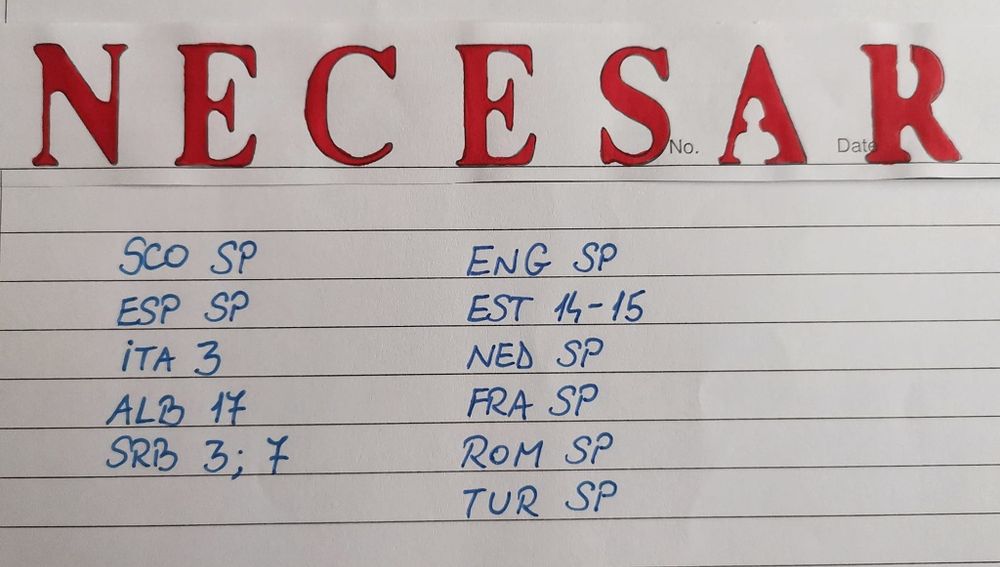 NECESAR
No. Date
SCO SP
ESP SP
ITA 3
ALB 17
SRB 3; 7
ENG SP
EST 14-15
NED SP
FRA SP
ROM SP
TUR SP